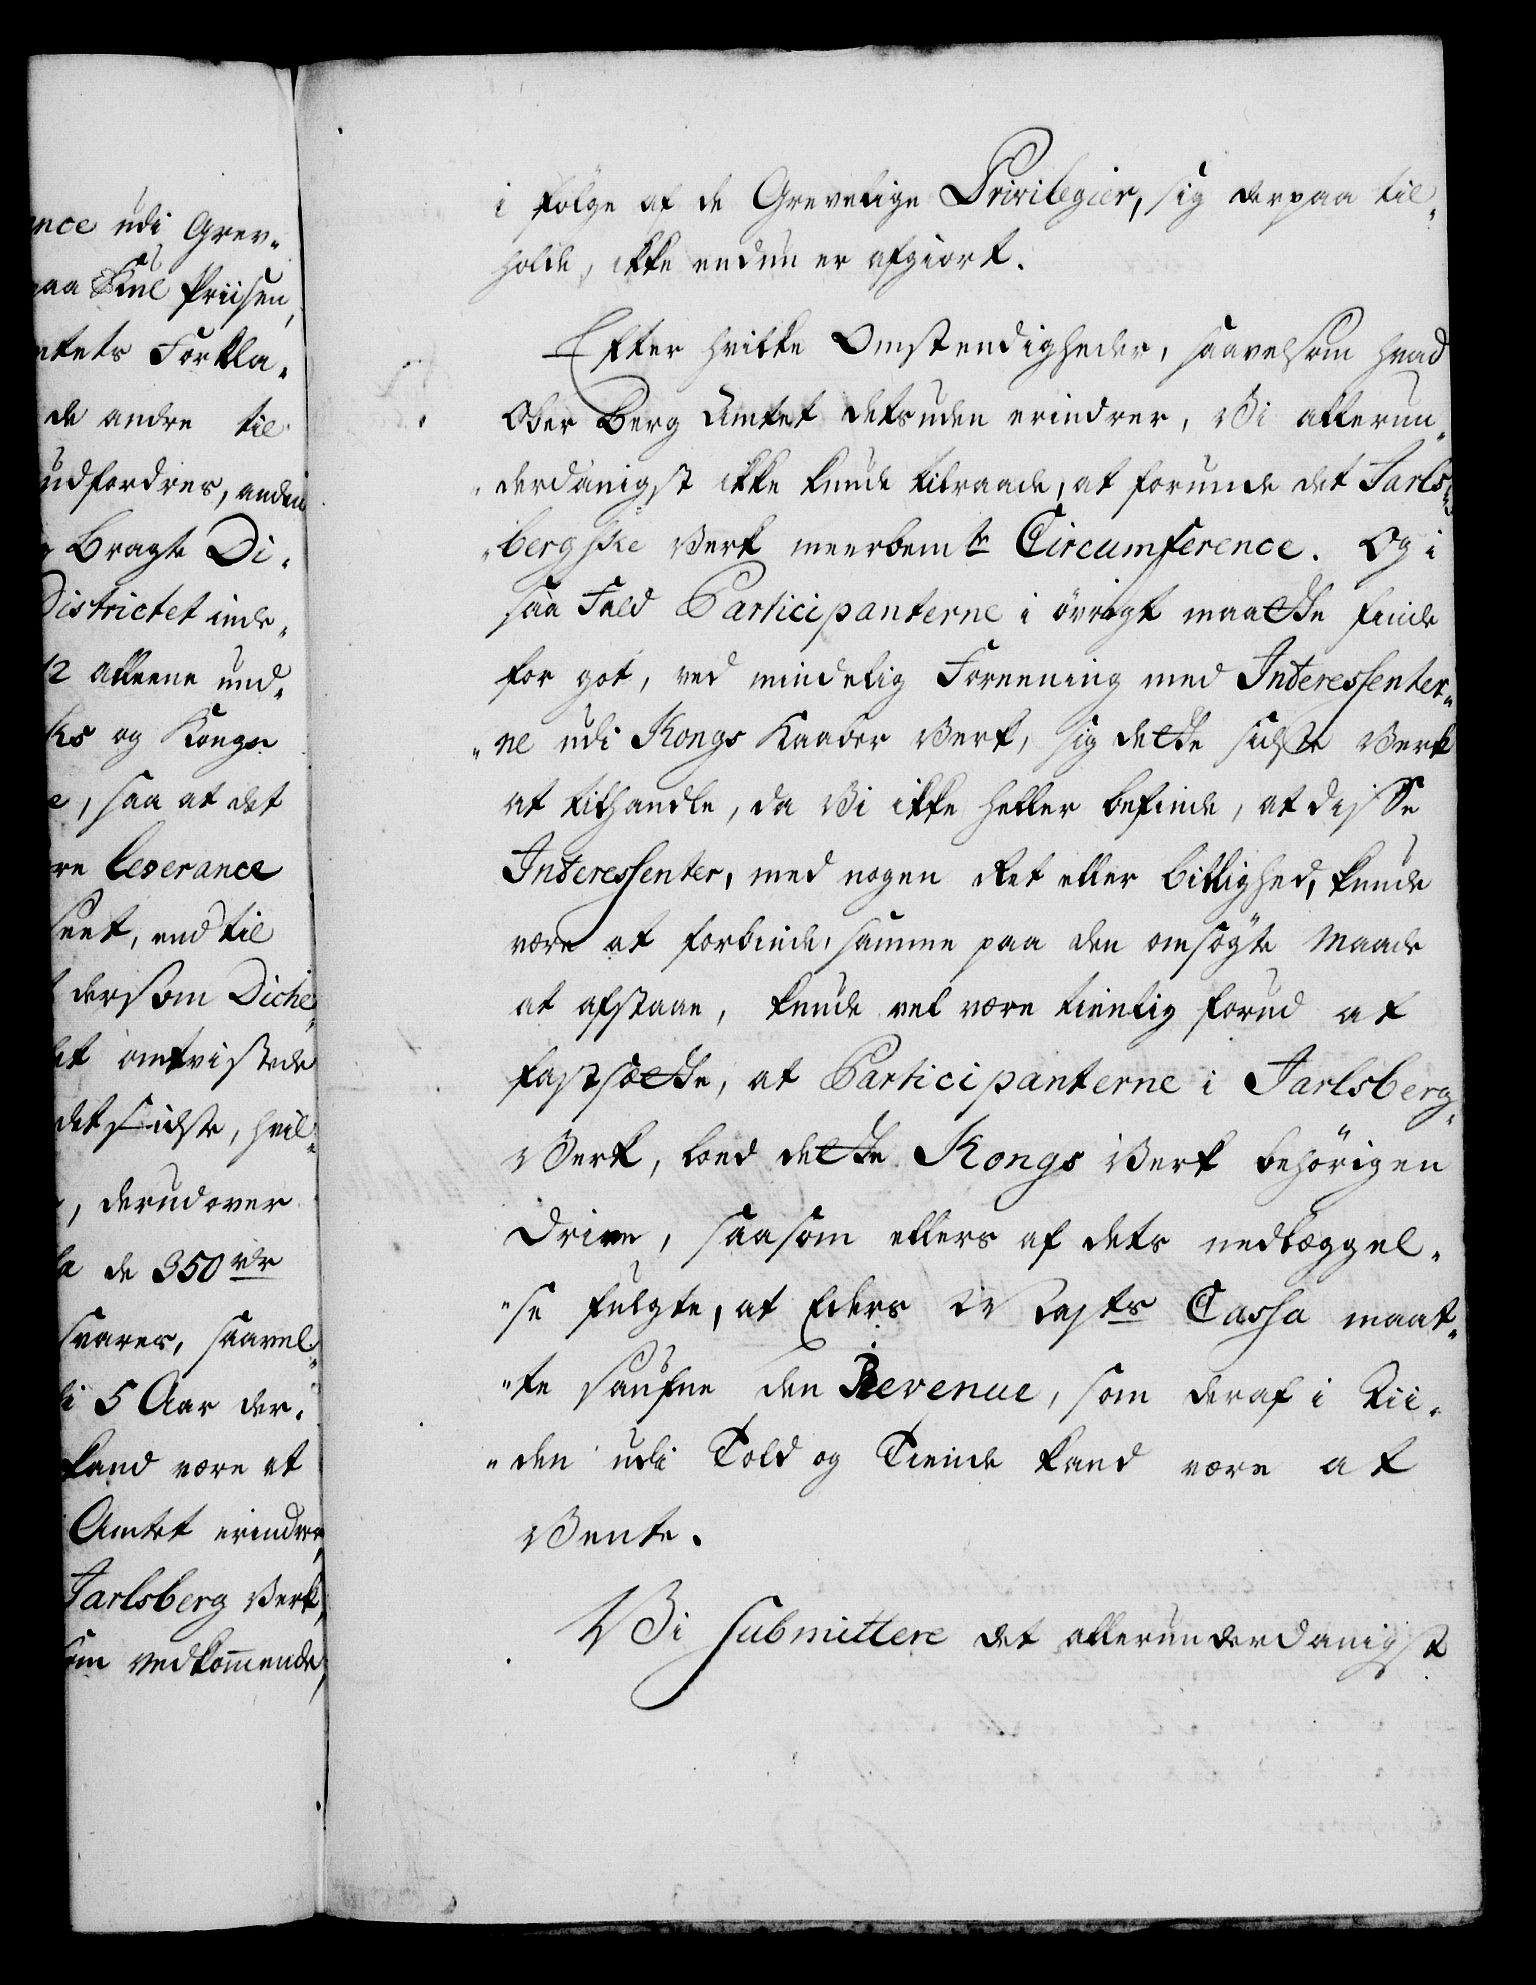 nce udi Grev-
aa Kul Priisen,
ntets Forkla-
de andre til
udfordres, anden
Bragte Di-
Districtet inde-
12 alleene und-
ks og Kongs
e, saa at det
re leverance
seet, end til
dersom Diche
et omtvistede
det sidste, hvil-
, derudover
la de 350 rdr
svarer, saavel-
i 5 Aar der-
kand være at
Amtet erindrer,
Jarlsberg Verk,
som vedkommende,
i følge af de Grevelige Privilegier, sig derpaa til-
holde, ikke endnu er afgiort.
Efter hvilke Omstendigheder, saavelsom hvad
Ober Berg Amtet desuden erindrer, Vi allerun-
derdanigst ikke kunde tilraade, at forunde det Jarls-
bergske Verk meerbemte Circumference. Og i
saa Fald Participanterne i øvrigt maatte finde
for got, ved mindelig Foreening med Interessenter-
ne udi Kongs Kaaber Verk, sig dette sidste Verk
at tilhandle, da Vi ikke heller befinde, at disse
Interessenter, med nogen Ret eller billighed, kunde
være at forbinde, samme paa den omsøgte Maade
at afstaae, kunde vel være tienlig forud at
fastsætte, at Participanterne i Jarlsberg-
Verk, lod dette Kongs Verk behørigen
drive, saasom ellers af dets nedlæggel-
se fulgte, at Eders Mayts Cassa maat-
te saufne den Revenue, som deraf i Tii-
den udi Told og Tiende kand være at
Vente.
Vi submittere det allerunderdanigst